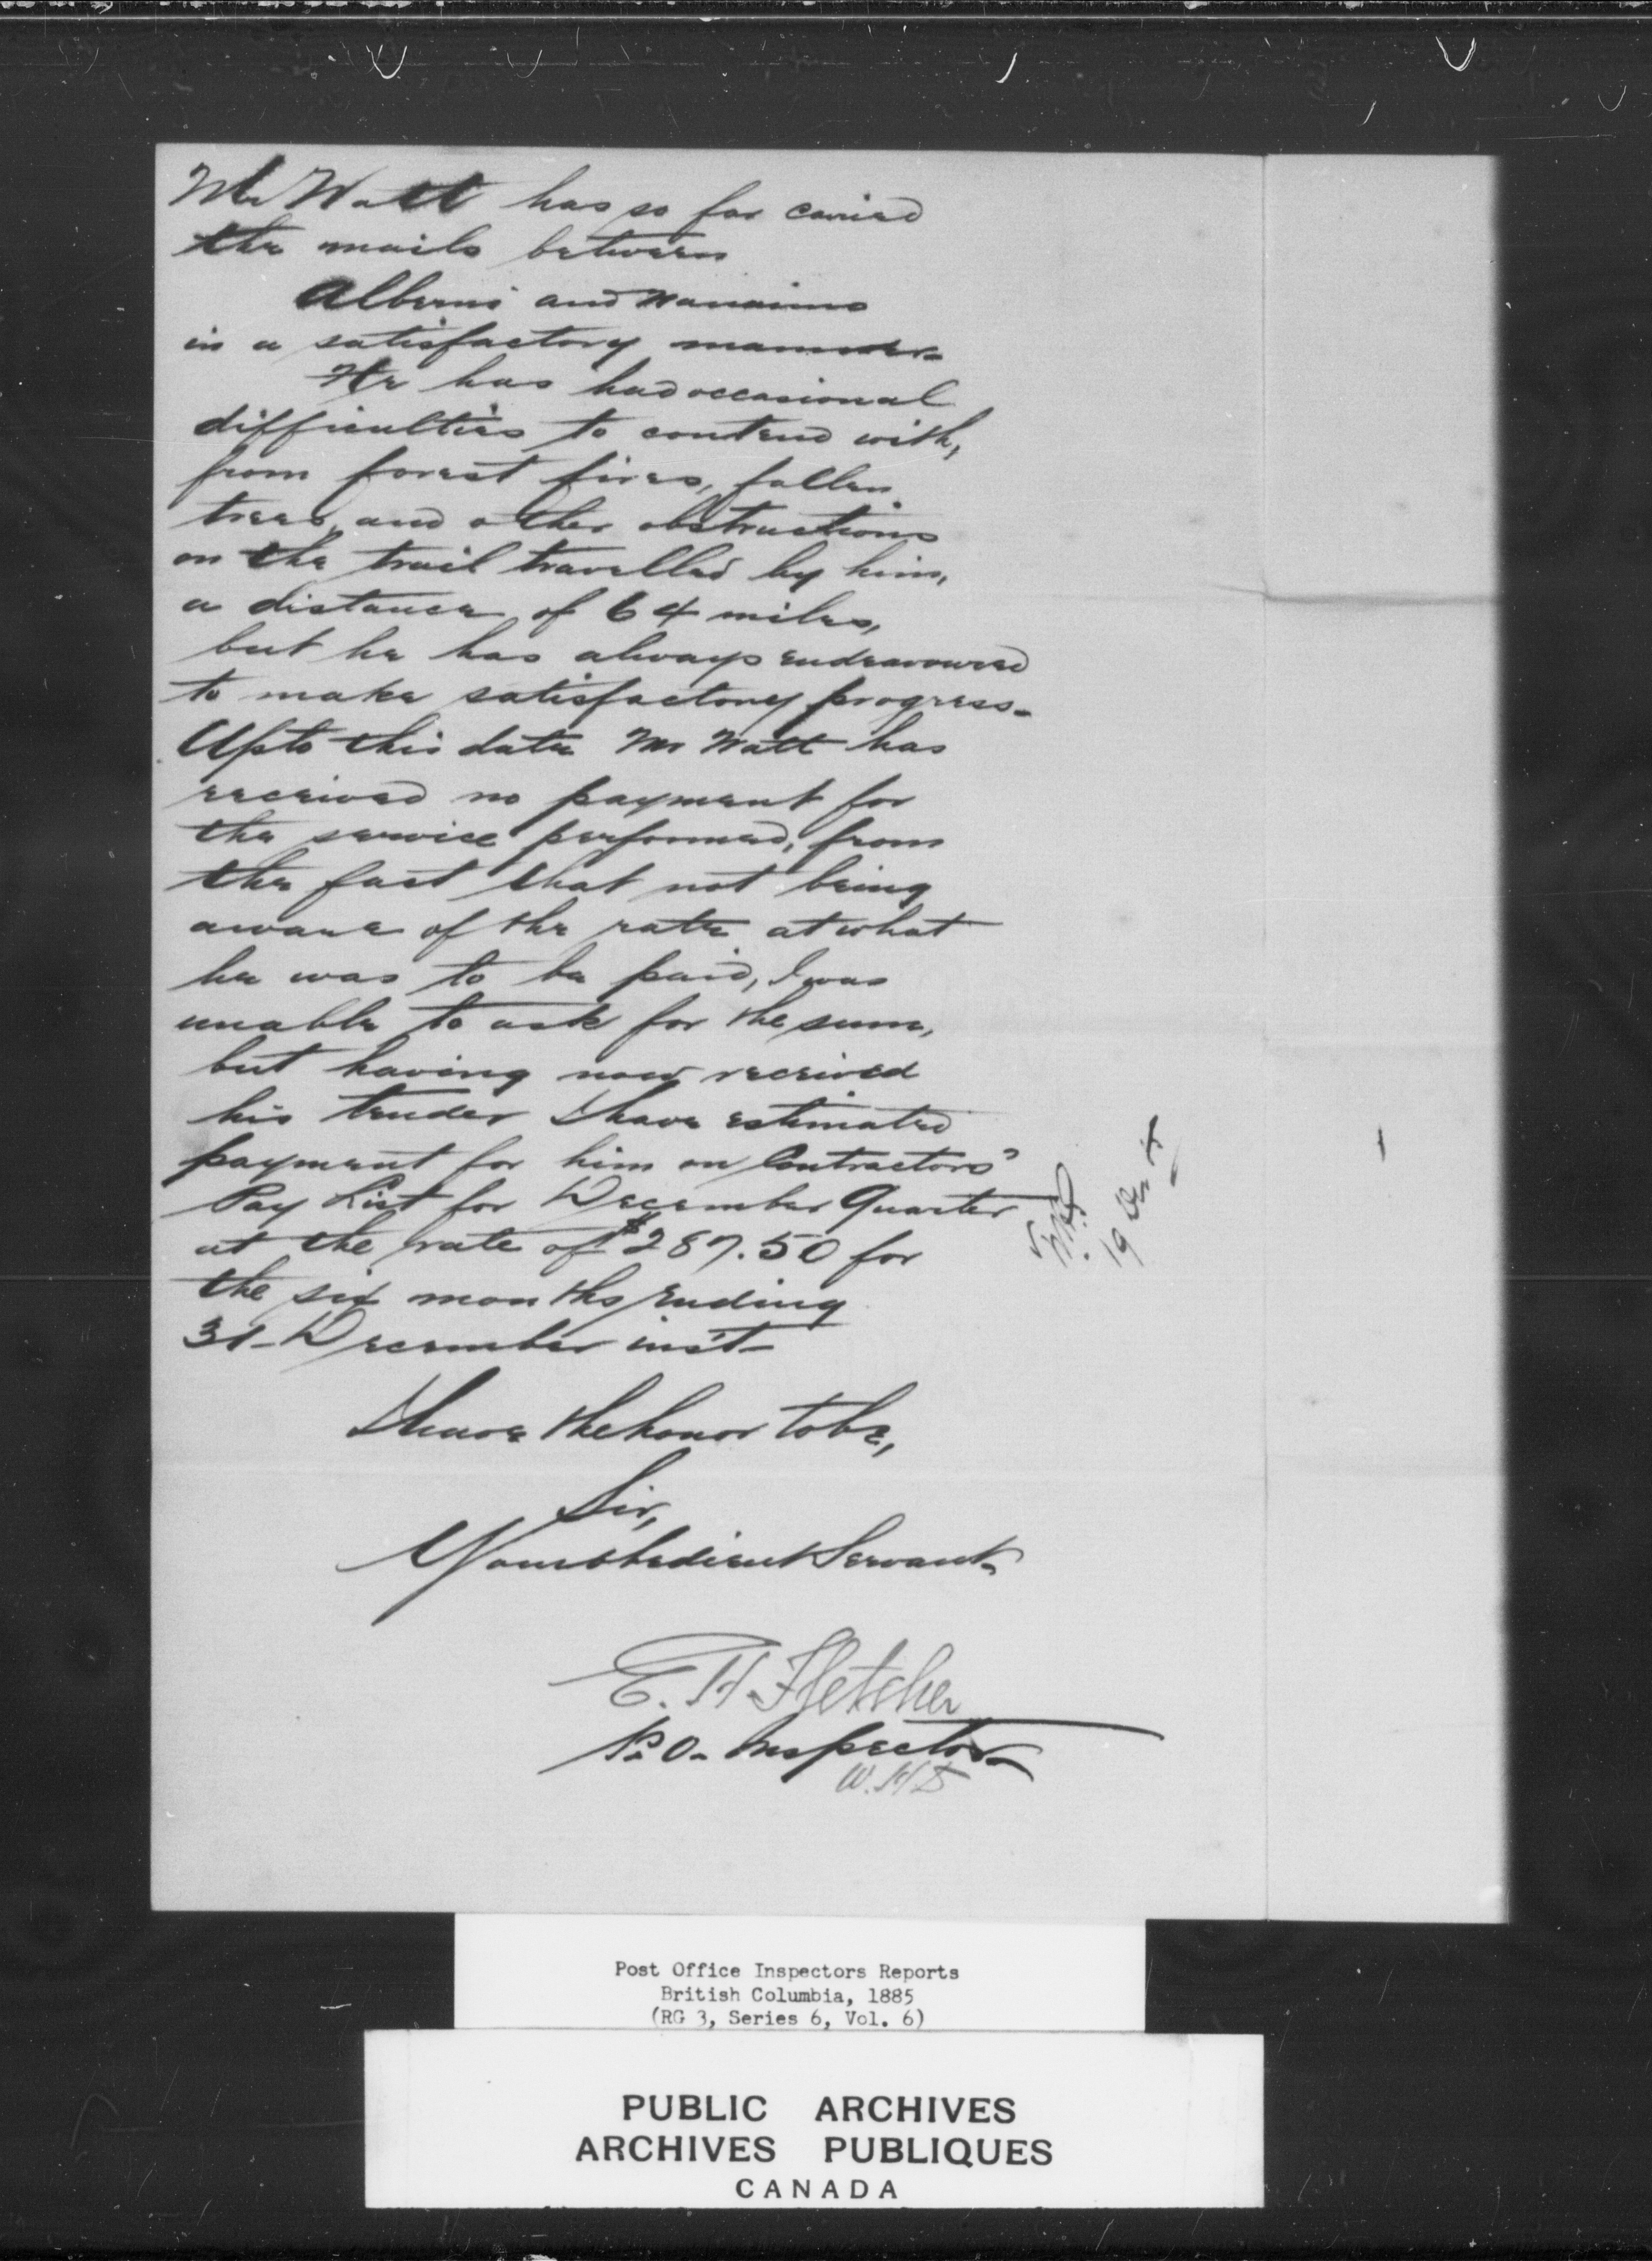 Mr Watt has so far carried
the mails between
Alberni and Nanaimo
in a satisfactory manner.
He has had occasional
difficulties to contend with,
from forest fires, fallen
trees, and other obstructions
on the trail travelled by him,
a distance of 64 miles,
but he has always endeavoured
to make satisfactory progress.
Up to this date Mr Watt has
received no payment for
the service performed, from
the fact that not being
aware of the rate at what
he was to be paid, I was
unable to ask for the sum,
but having now received
his tender I have estimated
payment for him on Contractors'
Pay List for December Quarter
at the rate of $287.50 for
the six months ending
31- December inst-
I have the honor to be,
Sir,
Your obedient Servant,
E. H. Fletcher
P.O. Inspector
19
Post Office Inspectors Reports
British Columbia, 1885
(RG 3, Series 6, Vol. 6)
PUBLIC ARCHIVES
ARCHIVES PUBLIQUES
CANADA